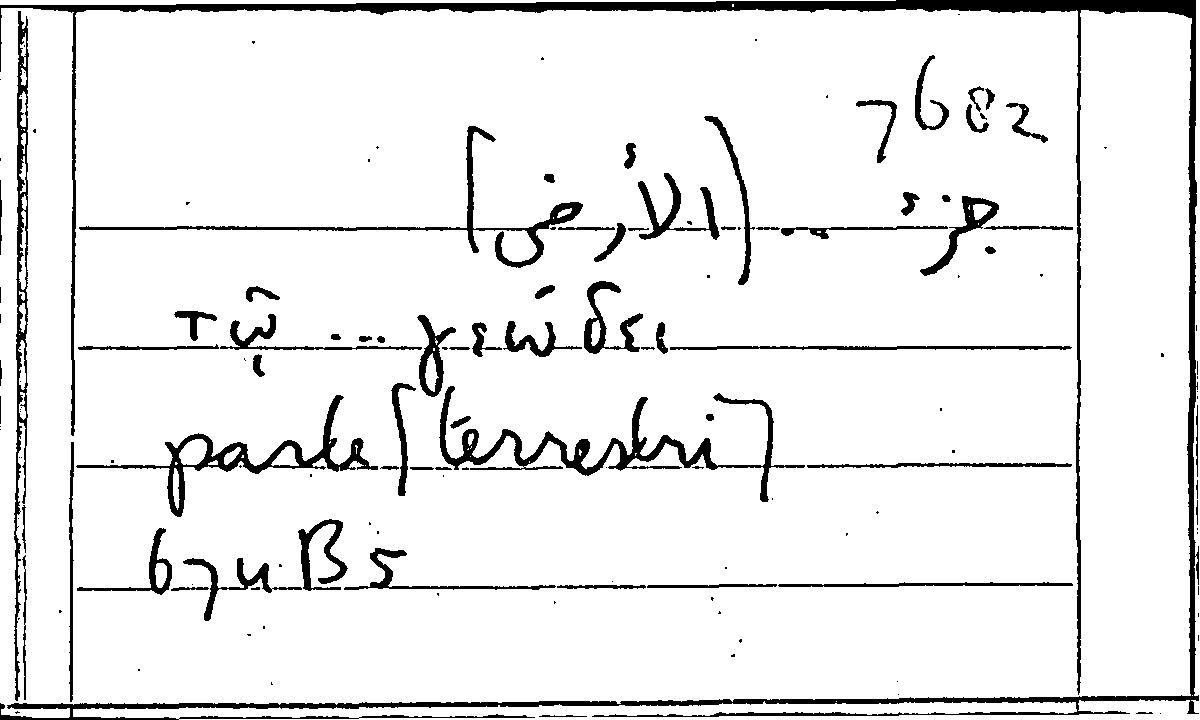 7682
جزء ... (الأرض]
τῷ ... γεώδει
parte [terrestri]
674B5